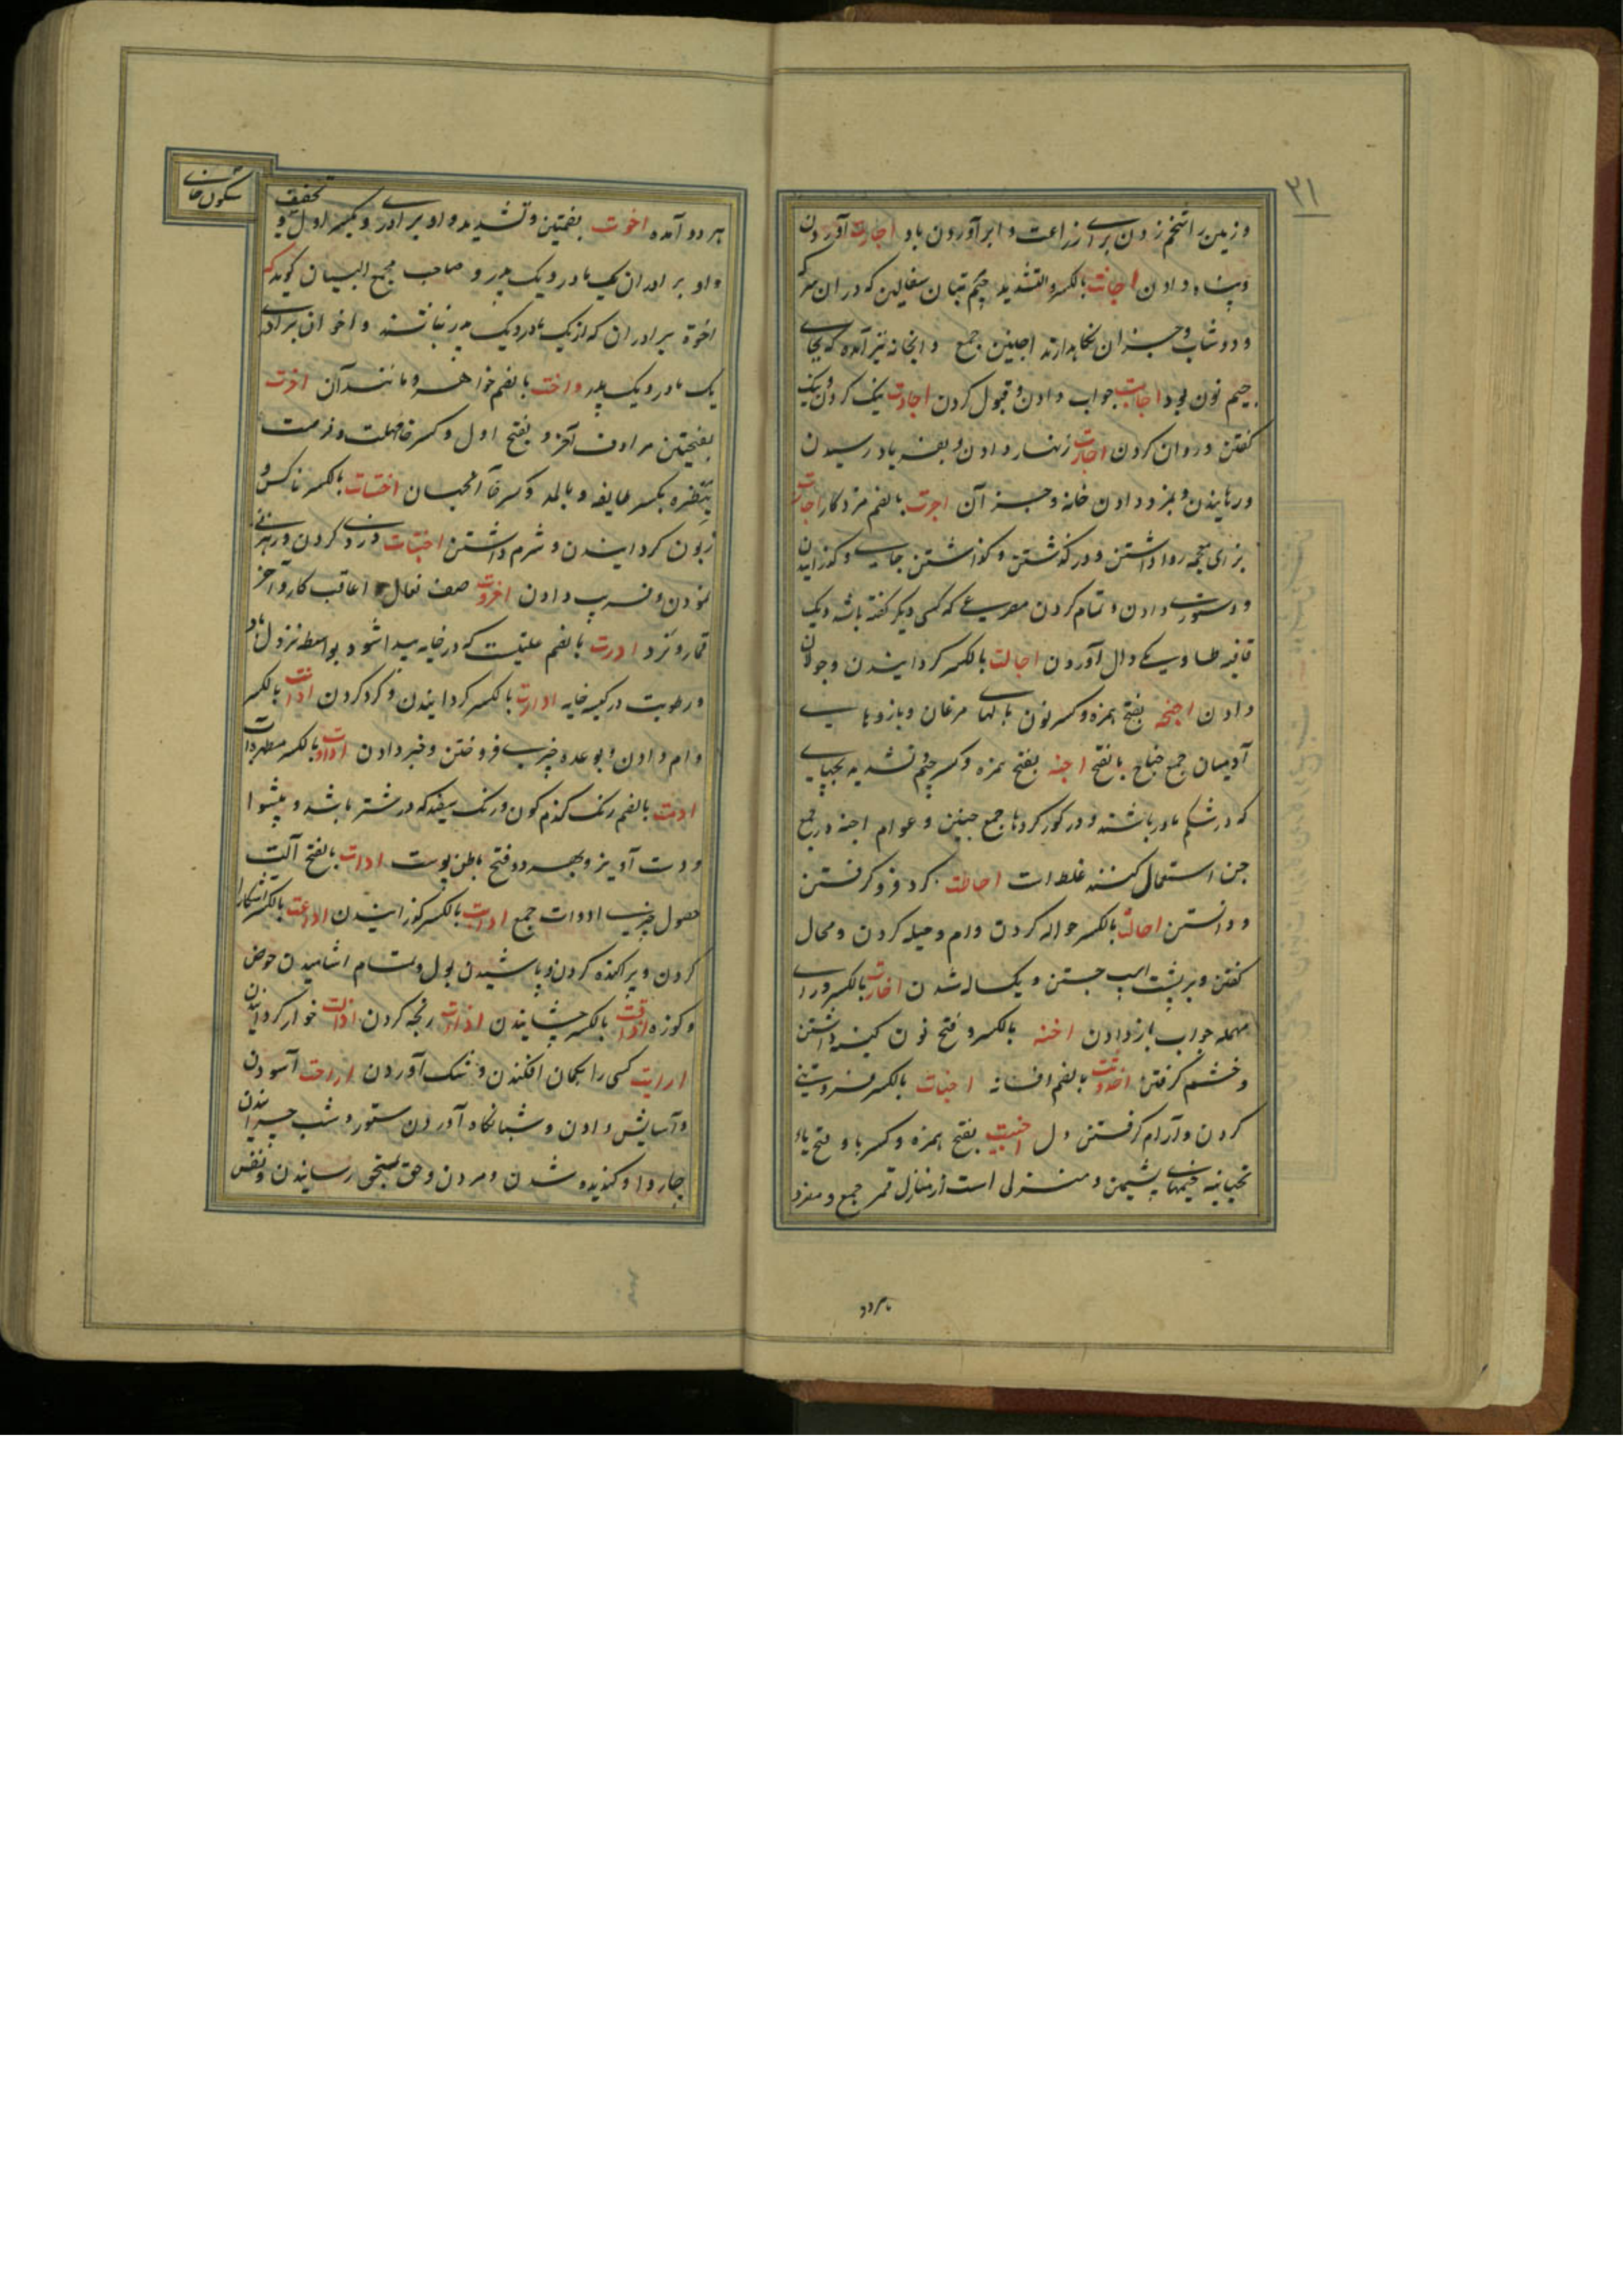 ۳۱
و زمین را تخم زدن برای زراعت و ابر آوردن باد اجارت آوردن
و پناه دادن اجانت بالکسر والتشدید جیم تبان سفالین که در ان سرکه
و دوشاب و جز ان نکاهدارند اجاجین جمع و انجانه نیز آمده که بجای
جیم نون بود اجابت جواب دادن و قبول کردن اجادت نیک کردن و نیک
کفتن و روان کردن اجارت زنهار دادن و بفریاد رسیدن
و رهانیدن و بمزد دادن خانه و جز آن اجرت بالضم مزد کار اجازت
بزای معجمه روا داشتن و در کذشتن و کذاشتن جایی و کذرانیدن
و دستوری دادن و تمام کردن مصرعی که کسی دیکر کفته باشد و یک
قافیه طا و یکی دال آوردن اجالت بالکسر کردانیدن و جولان
دادن اجنحه بفتح همزه و کسر نون بالهای مرغان و بازوهای
آدمیان جمع جناح بالفتح اجنه بفتح همزه و کسر جیم و تشدید بچهای
که در شکم مادر باشند و در کور کردها جمع جنین و عوام اجنه در جمع
جن استعمال کنند غلط است احاطت کرد فرو کرفتن
و دانستن احالت بالکسر حواله کردن وام و حیله کردن و محال
کفتن و بر پشت اسب جستن و یکساله شدن احارت بالکسر و رای
مهمله جواب باز دادن احنه بالکسر و فتح نون کینه داشتن
و خشم کرفتن احدوثت بالضم افسانه اخبات بالکسر فروتنی
کردن و آرام کرفتن دل اخبیت بفتح همزه و کسر با و فتح یاء
تحتانیه خیمهای پشیمن و منزلی است از منازل قمر جمع و مفرد
هردو
سکون خای
هر دو آمده اخوت بضمتین و تشدید واو برادری و بکسر اول و
تخفیف
واو برادران یک مادر و یک پدر و صاحب مجمع البیان کوید که
اخوة برادران که از یک مادر و یک پدر نباشند و اخوان برادری
یک مادر و یک پدر و اخت بالضم خواهر و مانند آن اخرت
بفتحتین مرادف آخر و بفتح اول و کسر خا مهلت و
بکسر و بالمد و کسر خا آنجهان اختات بالکسر ناکس و
زبون کردانیدن و شرم داشتن اختات دزدی کردن و رهزنی
نمودن و فریب دادن اخروت صف نعال عاقبت کار و آخر
قمار و نزد ادرت بالضم علتیست که در خایه پیدا شود بواسطه نزول باد
و رطوبت در کیسه خایه ادارت بالکسر کردانیدن و کرد کردن ادانت بالکسر
وام دادن و بوعده چیزی فروختن و خبر دادن بالکسر
ادمت بالضم رنک کندم کون و رنک سفید که در شتر باشد و پیشوا
و دست آویز و بهر دو فتح باطن پوست ادات بالفتح آلت
حصول چیزی ادوات جمع بالکسر کوزانیدن اذاعت بالکسر آشکارا
کردن و پراکنده کردن و پاشیدن بول و تمام آشامیدن حوض
و کوزه اذاقت بالکسر چشانیدن رنجه کردن اذالت خوار کردانیدن
ارابت کسی را بکمان افکندن و شک آوردن اراحت آسودن
و آسایش دادن و شبانکاه آوردن ستور و شب چرانیدن
چاروا و کندیده شدن و مردن و حق بمستحق رسانیدن و نفس